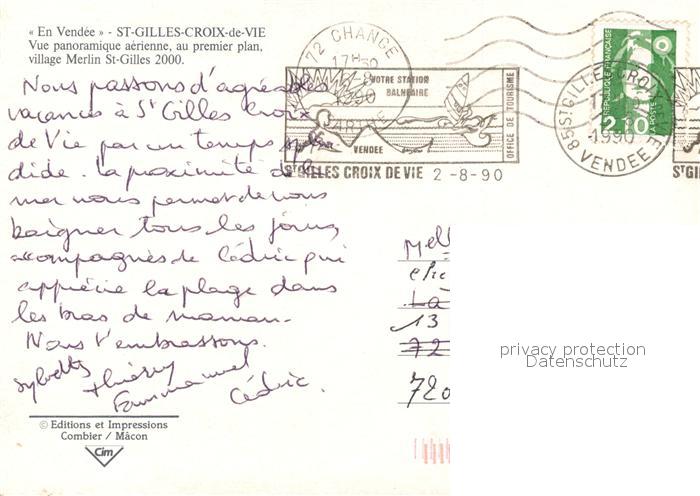 « En Vendée » - ST-GILLES-CROIX-de-VIE
Vue panoramique aérienne, au premier plan,
village Merlin St-Gilles 2000.
Nous passons d'agréables
vacances à St Gilles Croix
de Vie par un temps splen
dide. La proximité de la
mer nous permet de nous
baigner tous les jours,
accompagnés de Cédric qui
apprécie la plage dans
les bras de maman.
Nous t'embrassons.
Sylvette Thierry
Emmanuel
Cédric.
© Editions et Impressions
Combier / Mâcon
Cim
72 CHANGE
17H
1990
SARTHE
VOTRE STATION
BALNEAIRE
VENDEE
OFFICE DE TOURISME
ST GILLES CROIX DE VIE 2-8-90
REPUBLIQUE FRANCAISE
2,10
LA POSTE
85 ST GILLES CROIX DE VIE
1990
VENDEE
ST GIL
Mell
13
72
720
privacy protection
Datenschutz